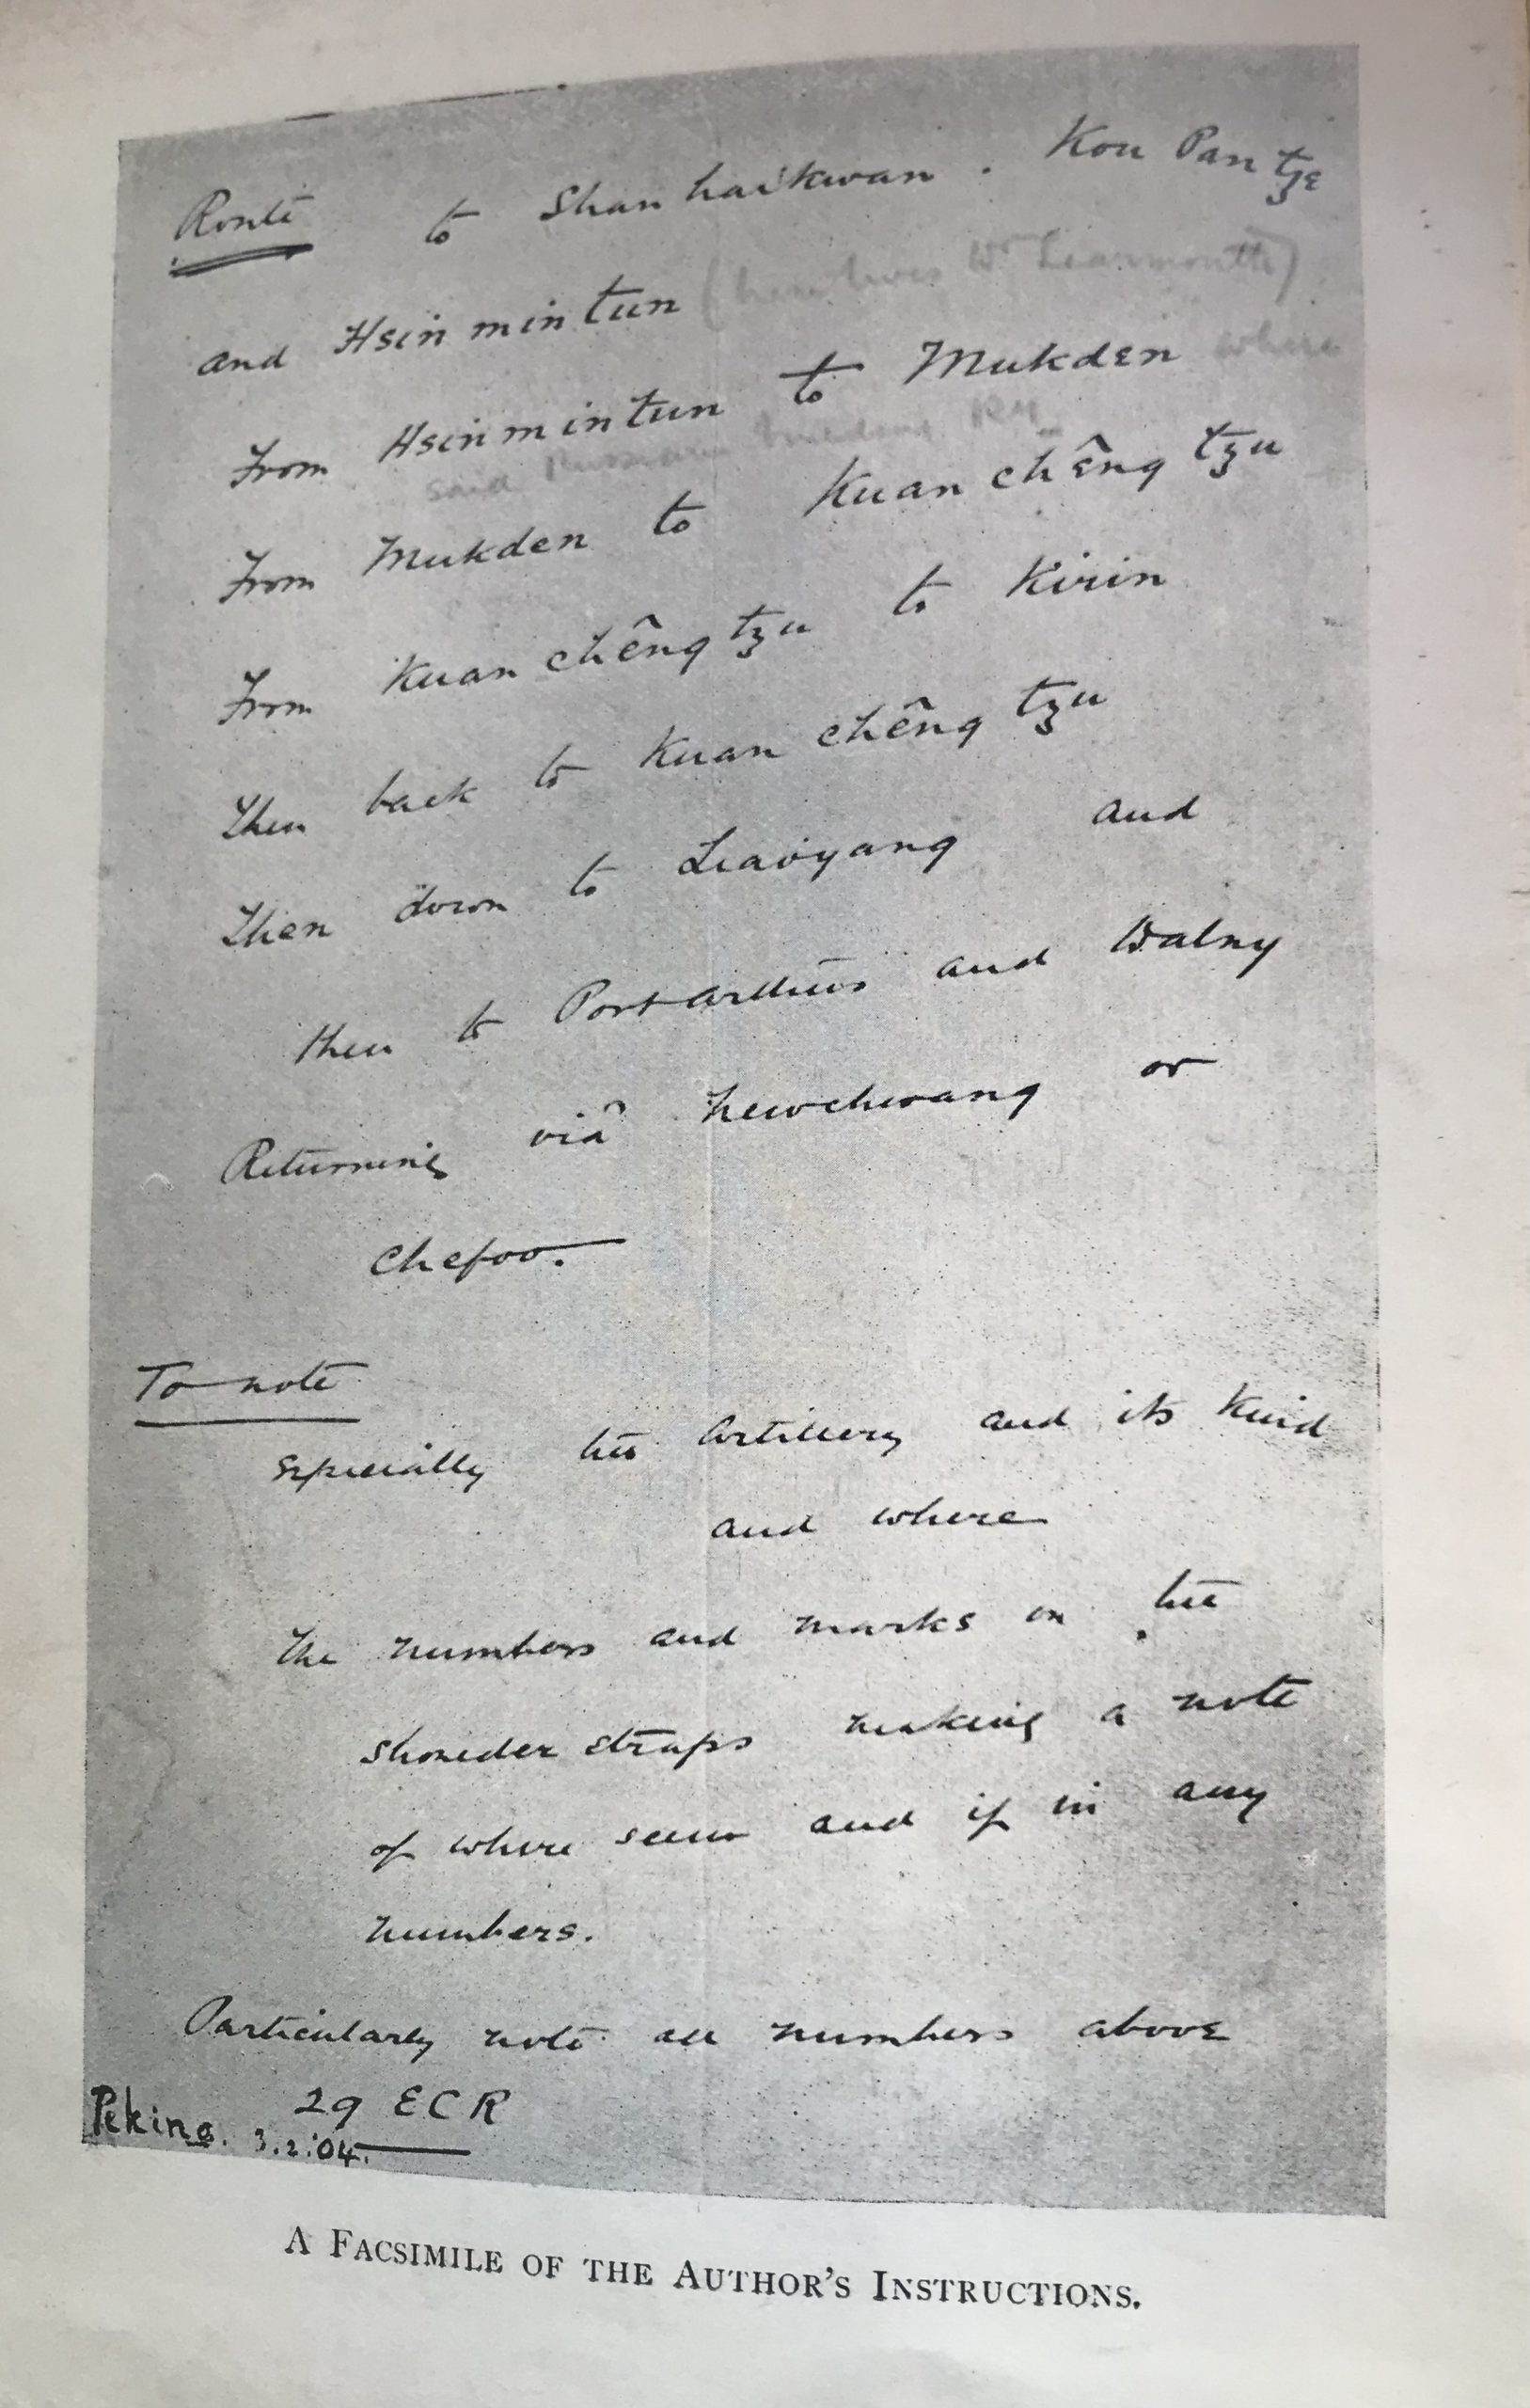 Route to Shan hai kwan. Kou Pan tze
and Hsin min tun (here lives Dr Learmonth)
From Hsin min tun to Mukden where
said Russians building RY
From Mukden to Kuan chêng tzu
From Kuan chêng tzu to Kirin
Then back to Kuan chêng tzu
Then down to Liaoyang and
then to Port Arthur and Dalny
Returning viâ Newchwang or
Chefoo.
To note
Especially the artillery and its kind
and where
The numbers and marks on the
shoulder straps making a note
of where seen and if in any
numbers.
Particularly note all numbers above
29 ECR
Peking. 3.2.'04.
A FACSIMILE OF THE AUTHOR'S INSTRUCTIONS.